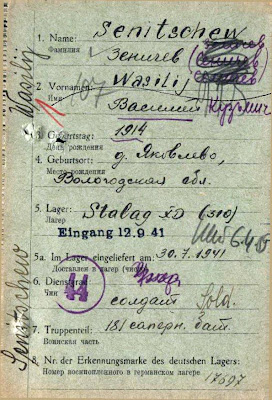 1. Name: Senitschew
Фамилия Зеничев
2. Vornamen: Wasilij
Имя Василий Кузьмич
107
1
3. Geburtstag: 1914
День рождения
4. Geburtsort: д. Яковлево,
Место рождения
Вологодская обл.
5. Lager: Stalag XD (310)
Лагерь
Eingang 12.9 41
5a. Lager eingeliefert am: 30.7.1941
Доставлен в лагерь (число)
6. Dienstgrad: Sold.
Чин солдат
44
7. Truppenteil: 181 саперн. бат.
Воинская часть
8. Nr. der Erkennungsmarke des deutschen Lagers:
Номер военнопленного в германском лагере
17697
Wasilij
Senitschew